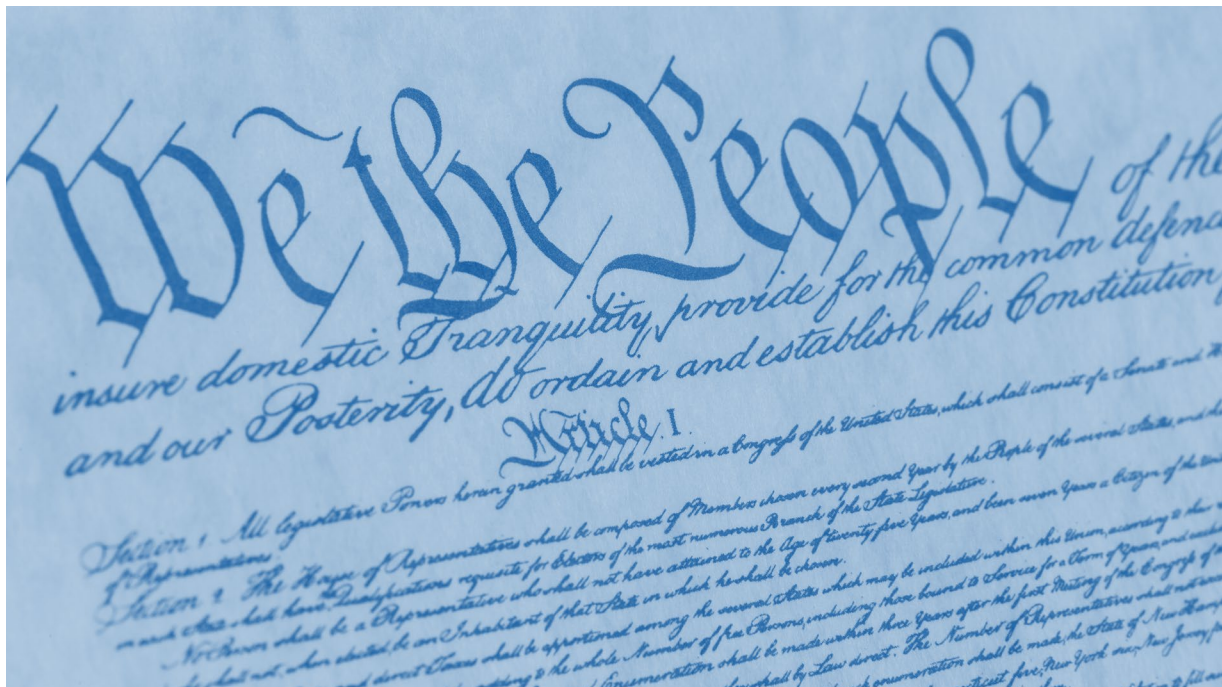 We the People of the
insure domestic Tranquility, provide for the common defence
and our Posterity, do ordain and establish this Constitution
Article. I.
Section 1 All legislative Powers herein granted shall be vested in a Congress of the United States, which shall consist of a Senate and
of Representatives.
Section 2 The House of Representatives shall be composed of Members chosen every second Year by the People of the several States, and
in each State shall have Qualifications requisite for Electors of the most numerous Branch of the State Legislature.
No Person shall be a Representative who shall not have attained to the Age of twenty five Years, and been seven Years a Citizen of the
shall not, when elected, be an Inhabitant of that State in which he shall be chosen.
and direct Taxes shall be apportioned among the several States which may be included within this Union, according to their
to the whole Number of free Persons, including those bound to Service for a Term of Years, and
Enumeration shall be made within three Years after the first Meeting of the Congress of
shall by Law direct. The Number of Representatives shall not
enumeration shall be made, the State of New
five, New York six, New Jersey